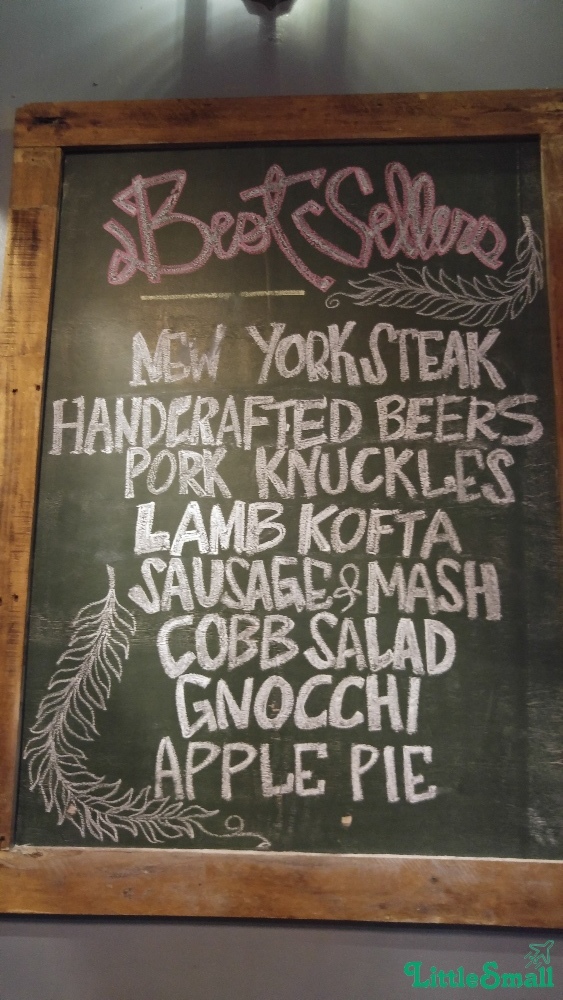 Best Sellers
NEW YORK STEAK
HANDCRAFTED BEERS
PORK KNUCKLES
LAMB KOFTA
SAUSAGE & MASH
COBB SALAD
GNOCCHI
APPLE PIE
LittleSmall